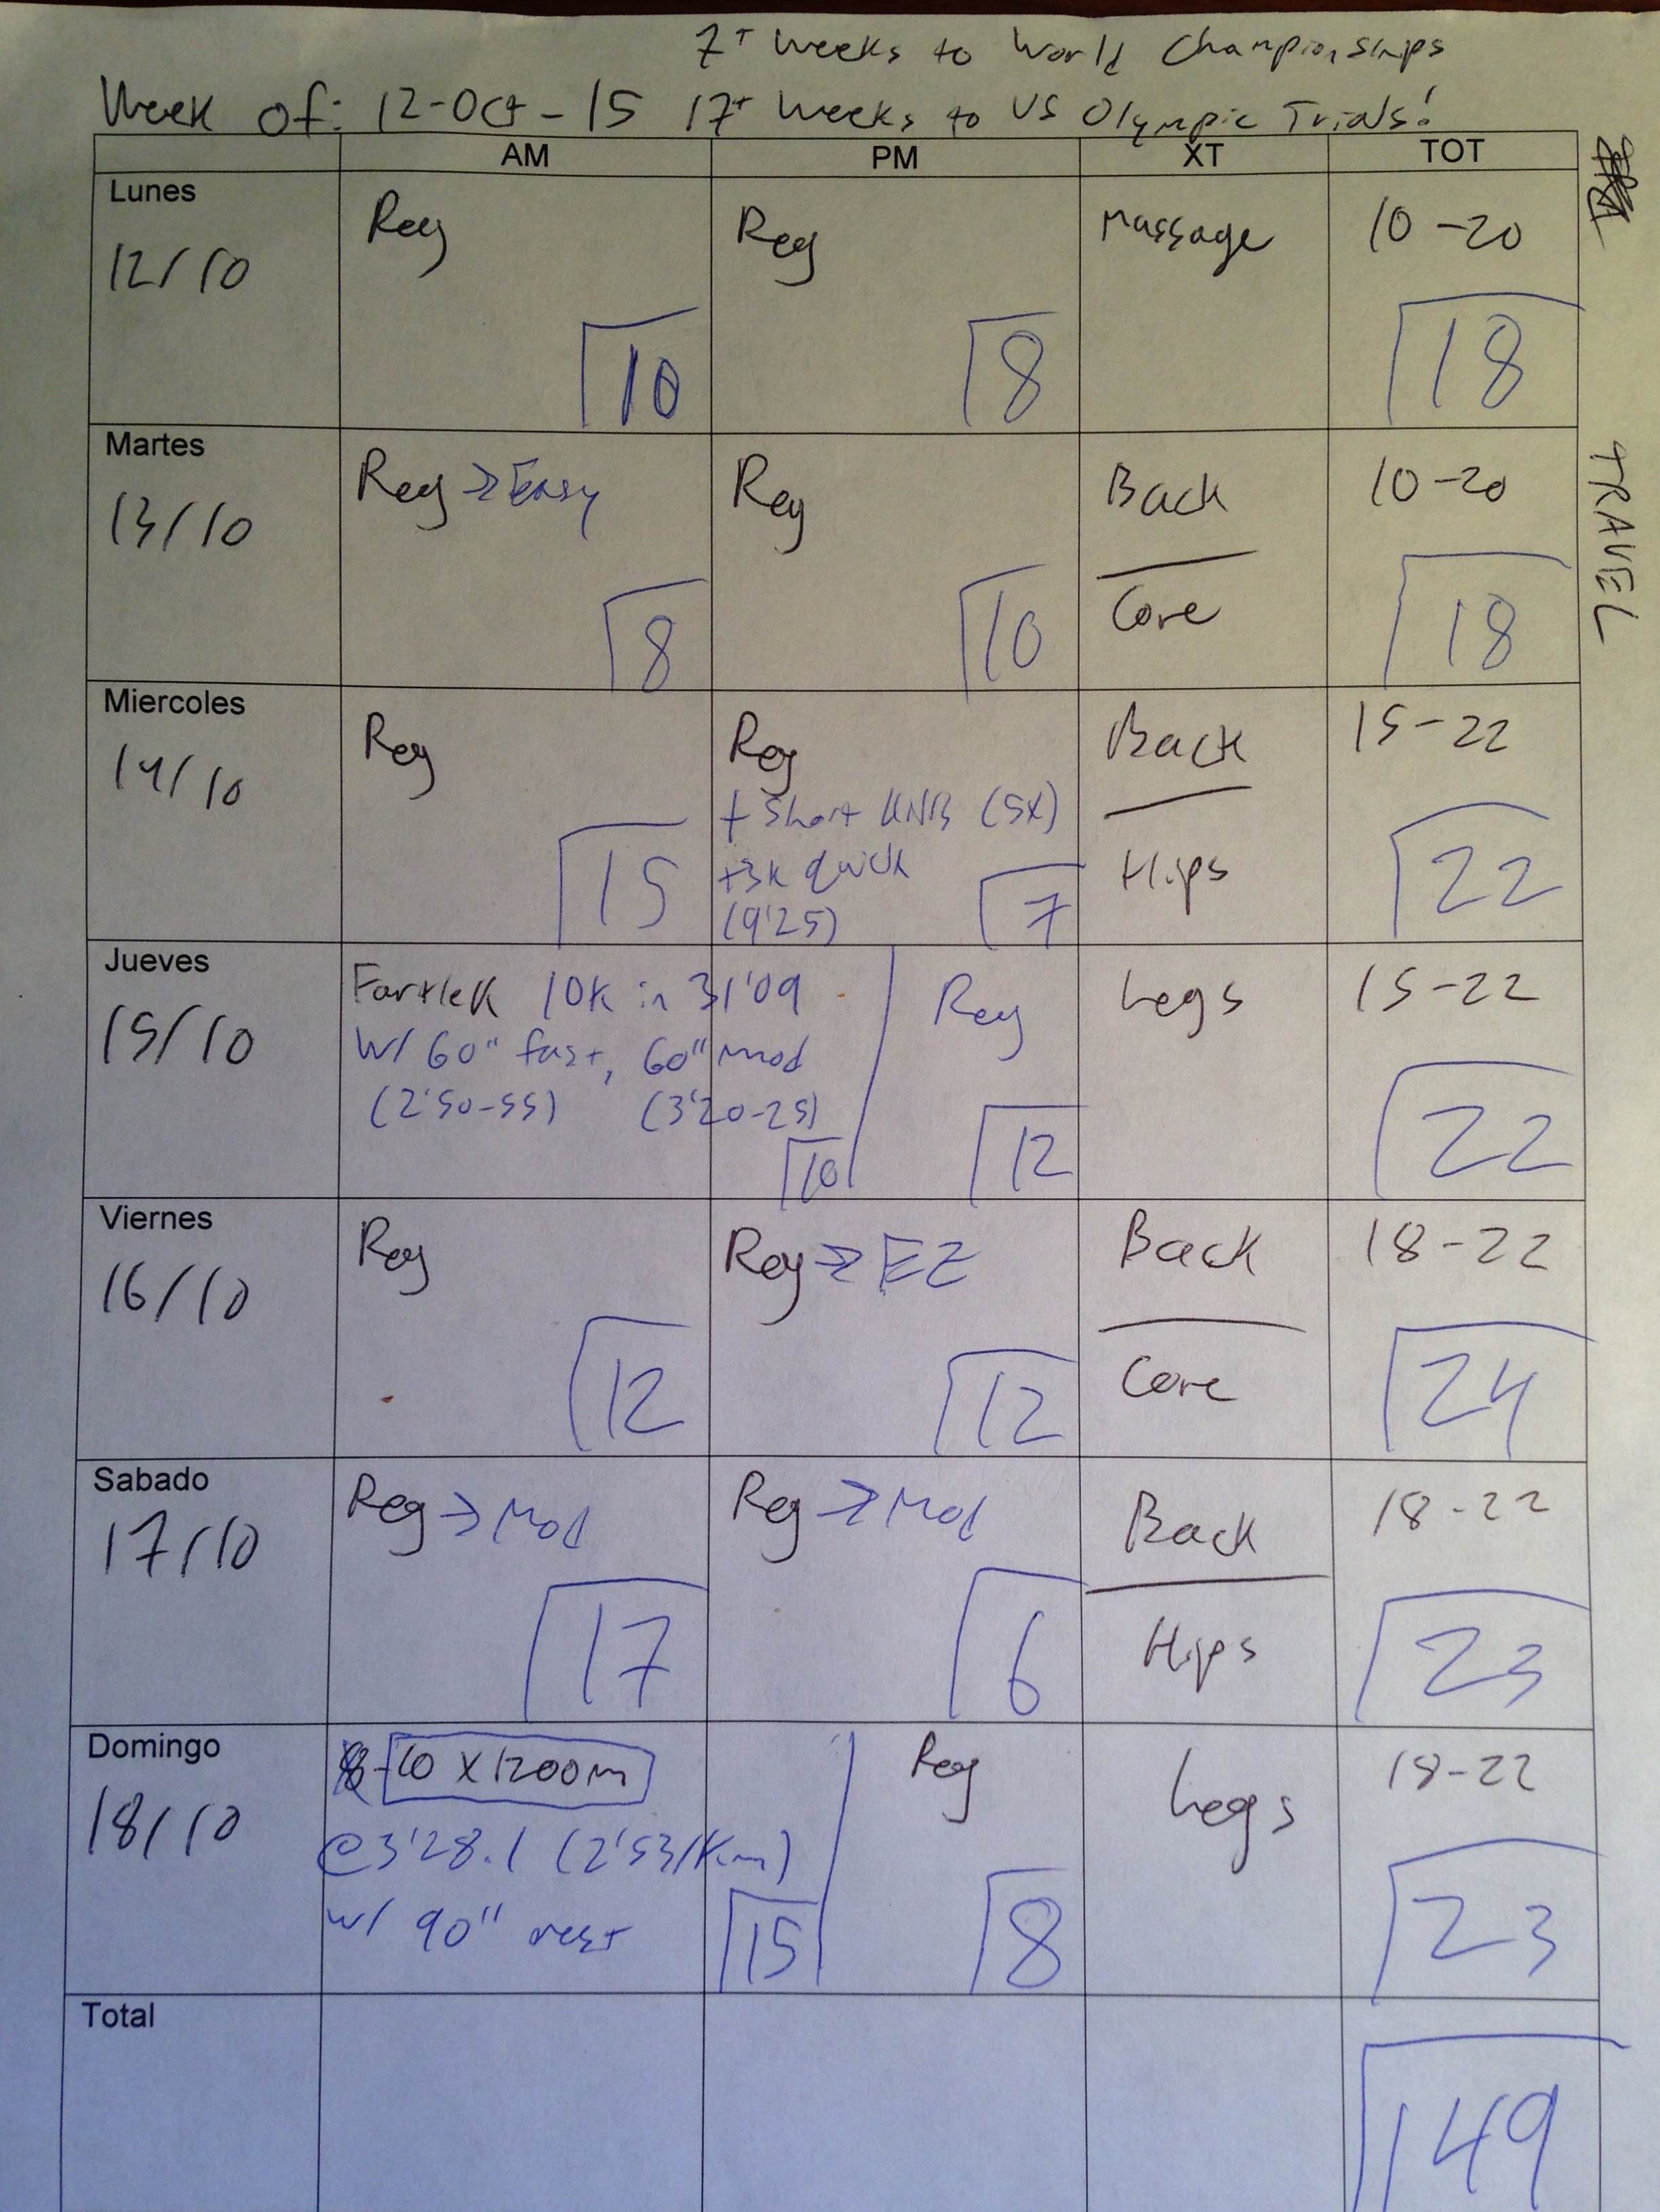 7+ Weeks to World Championships
Week of: 12-Oct-15 17+ Weeks to US Olympic Trials!
AM PM XT TOT
Lunes
12/10
Reg
10
Reg
8
Massage
10-20
18
Martes
13/10
Reg → Easy
8
Reg
10
Back
Core
10-20
18
TRAVEL
Miercoles
14/10
Reg
15
Reg
+ Short KNB (5x)
+3k quick
(9'25)
7
Back
Hips
15-22
22
Jueves
15/10
Fartlek 10K in 31'09
w/ 60" fast, 60" mod
(2'50-55) (3'20-25)
10
Reg
12
Legs
15-22
22
Viernes
16/10
Reg
12
Reg → EZ
12
Back
Core
18-22
24
Sabado
17/10
Reg → Mod
17
Reg → Mod
6
Back
Hips
18-22
23
Domingo
18/10
8-10 x 1200m
@3'28.1 (2'53/Km)
w/ 90" rest
15
Reg
8
Legs
18-22
23
Total
149